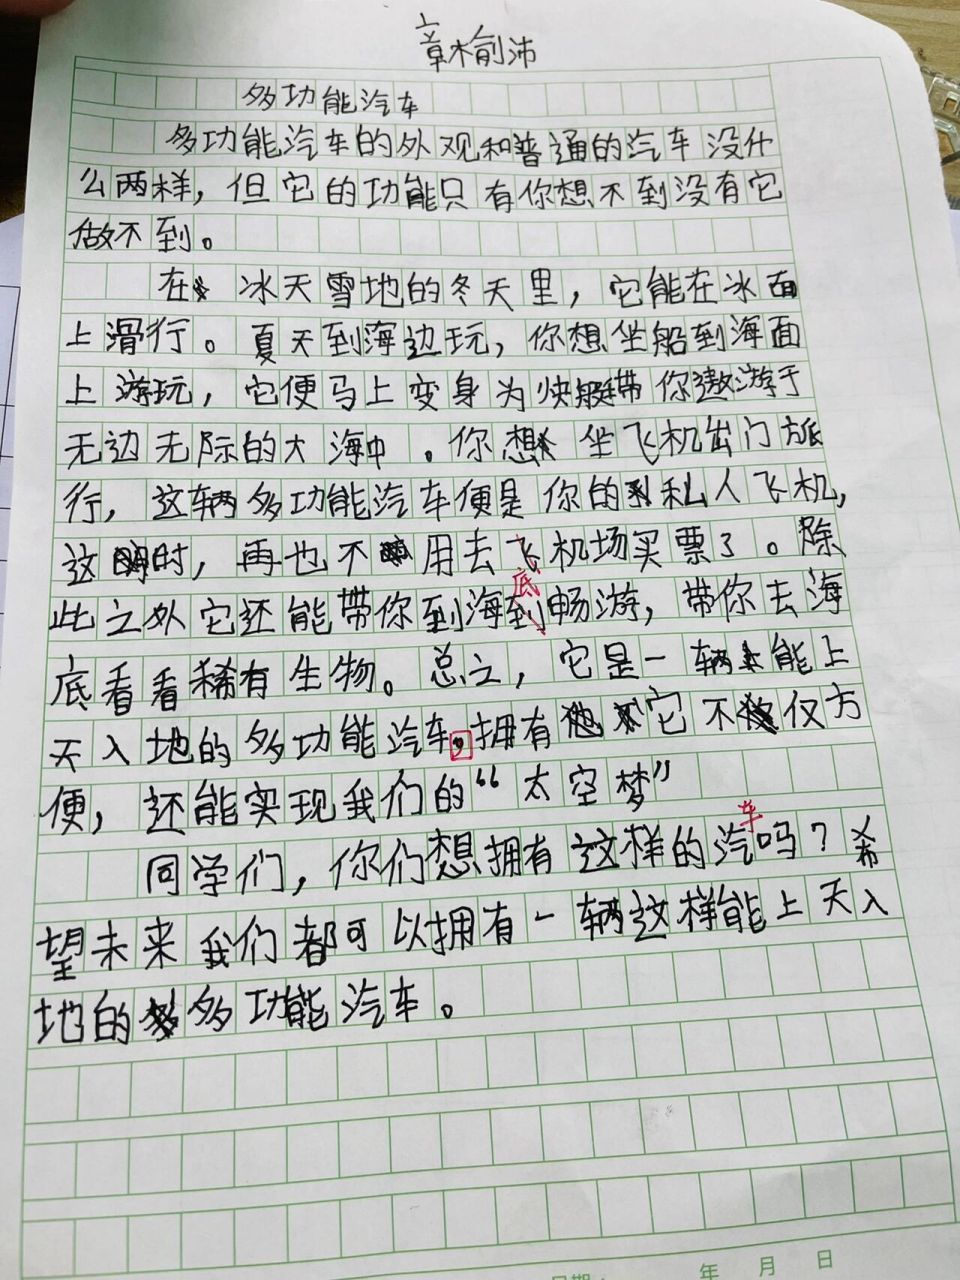 章榆沛
多功能汽车
多功能汽车的外观和普通的汽车没什
么两样，但它的功能只有你想不到没有它
做不到。
在冰天雪地的冬天里，它能在冰面
上滑行。夏天到海边玩，你想坐船到海面
上游玩，它便马上变身为快艇带你遨游于
无边无际的大海中。你想坐飞机出门旅
行，这辆多功能汽车便是你的私人飞机，
这时，再也不用去飞机场买票了。除
底
此之外它还能带你到海到畅游，带你去海
底看看稀有生物。总之，它是一辆能上
天入地的多功能汽车，拥有它不仅方
便，还能实现我们的“太空梦”
车
同学们，你们想拥有这样的汽吗？希
望未来我们都可以拥有一辆这样能上天入
地的多功能汽车。
年 月 日